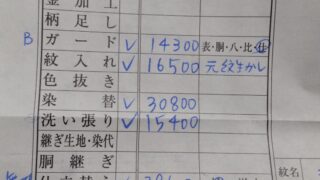 金加工
柄足し
B ガード ✓ 14300 表・胴・八・比・仕
紋入れ ✓ 16500 元紋生かし
色抜き
染替 ✓ 30800
洗い張り ✓ 15400
継ぎ生地・染代
胴継ぎ
紋名